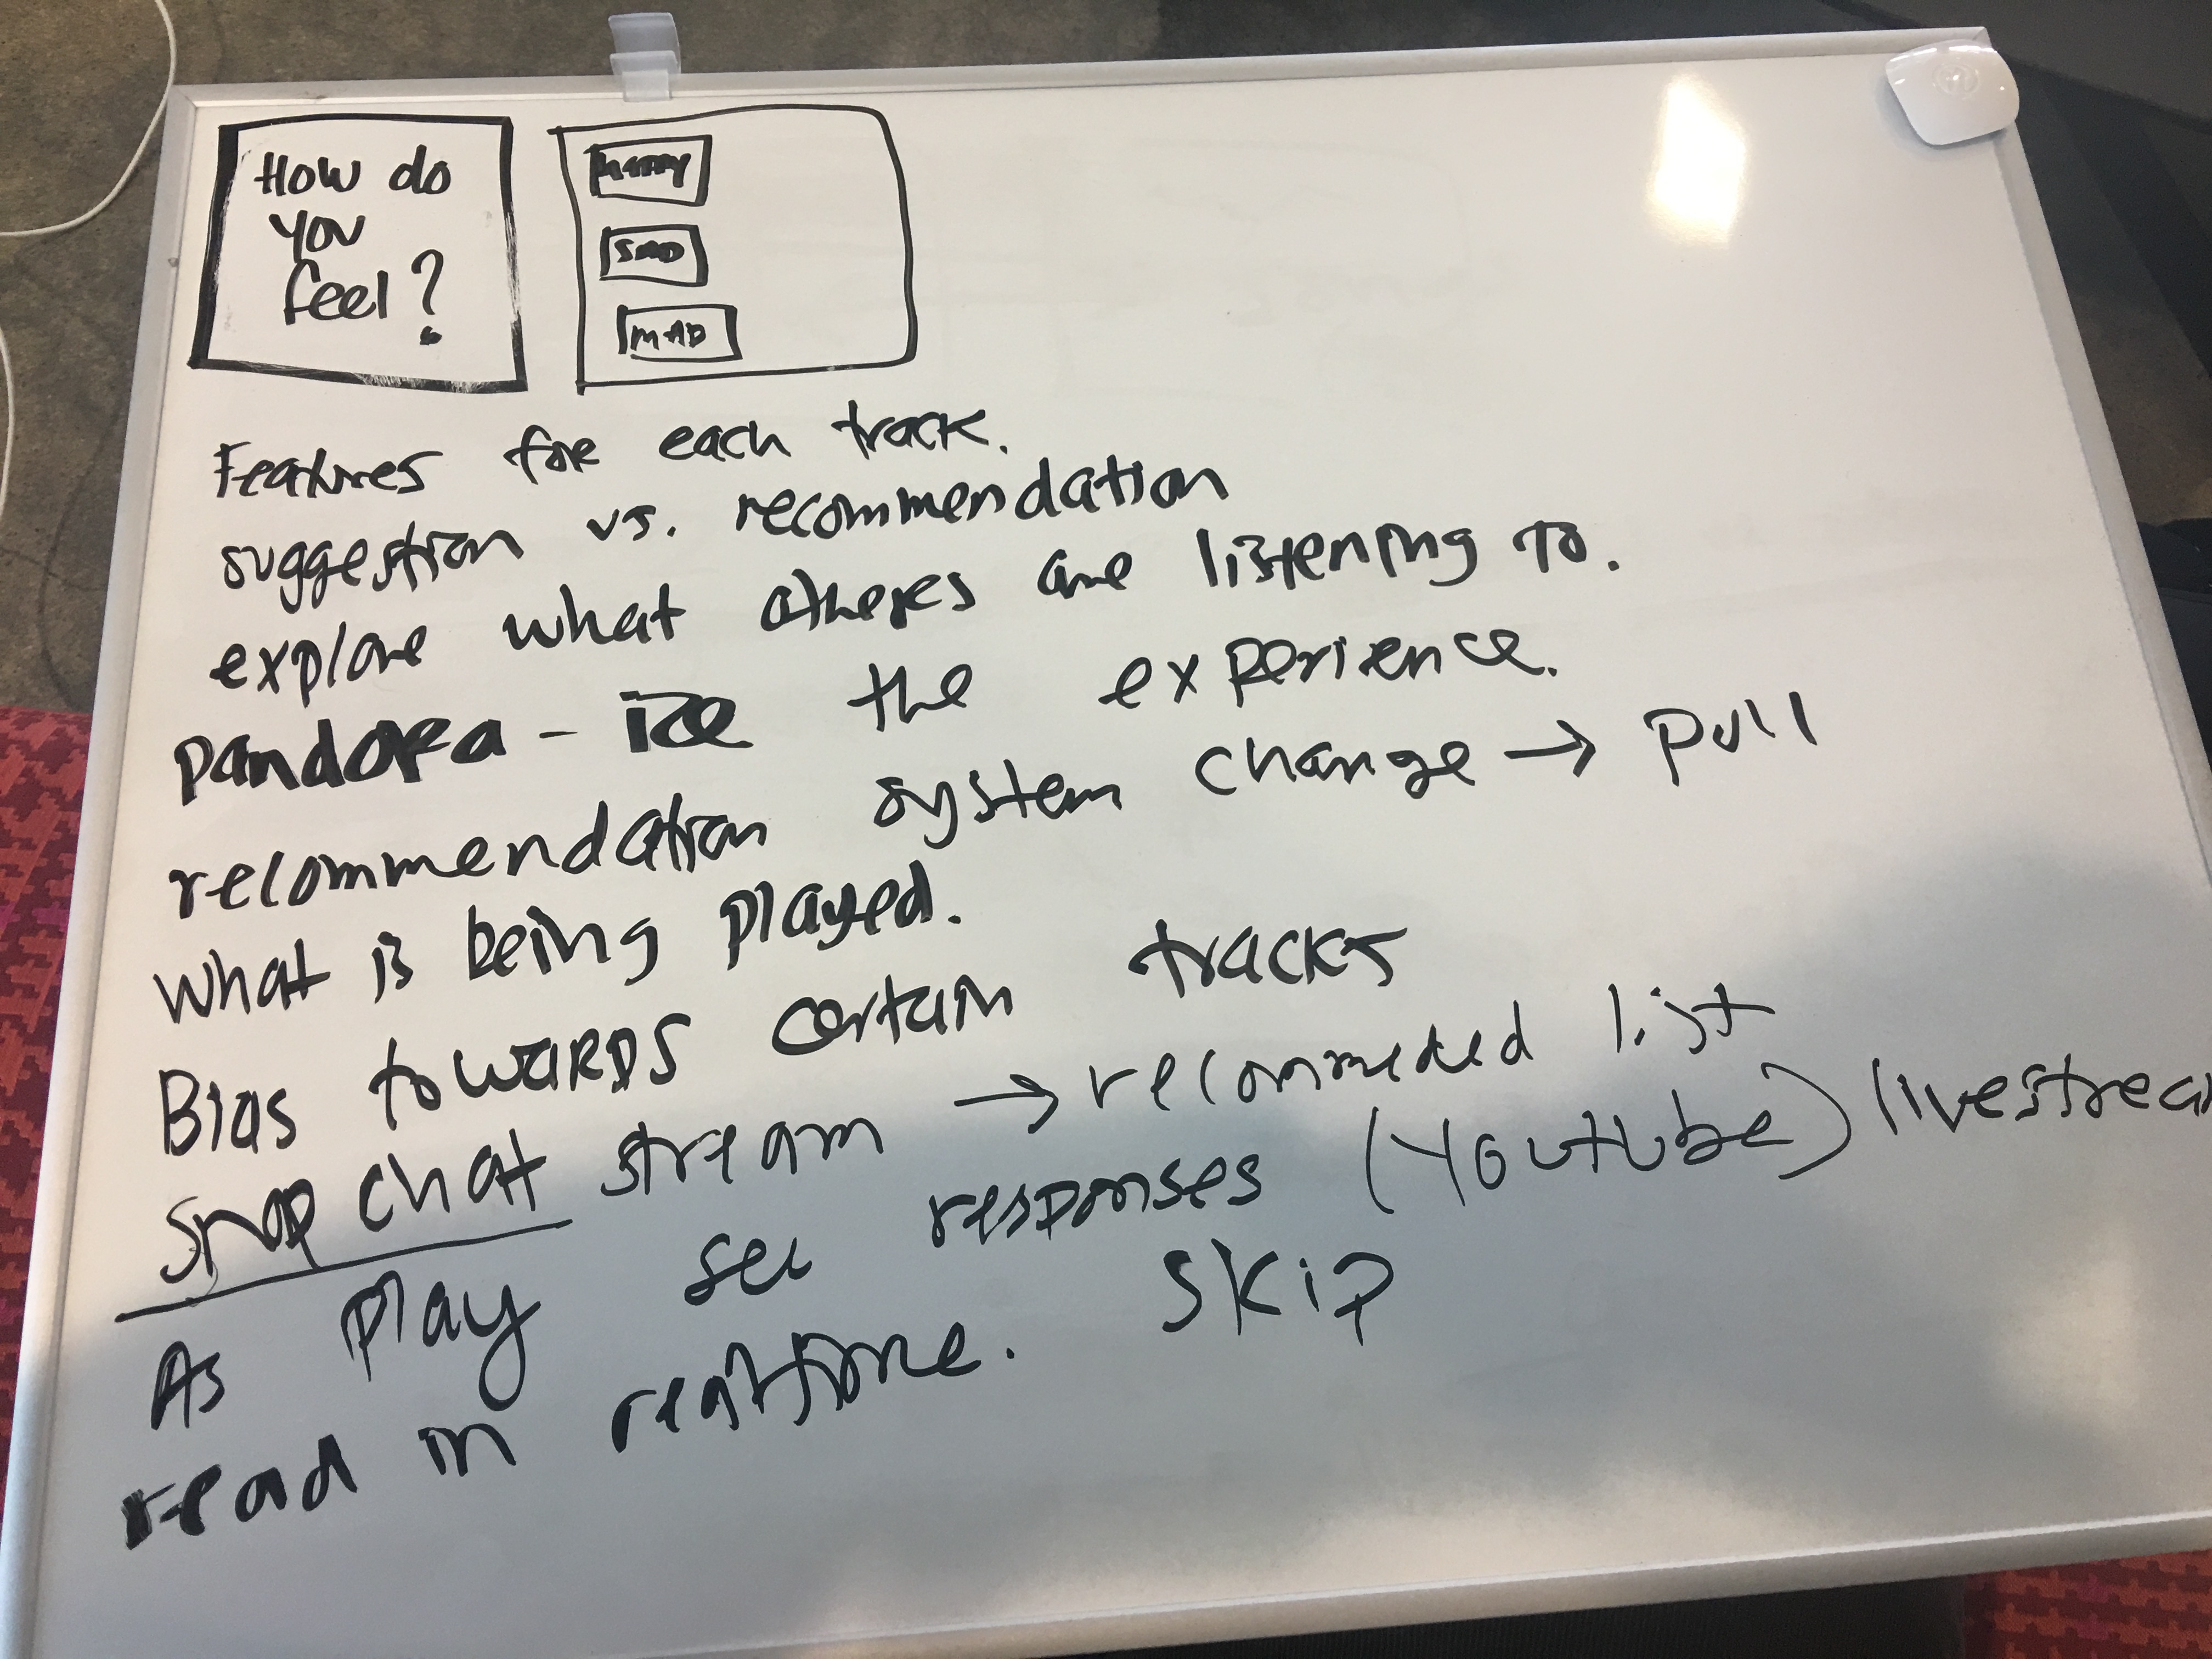 How do
you
feel?
happy
SAD
MAD
Features for each track.
suggestion vs. recommendation
explore what others are listening to.
pandora-ize the experience.
recommendation system change → pull
what is being played.
Bias towards certain tracks
Snapchat stream → recommeded list
As play see responses (Youtube) livestream
read in realtime. skip